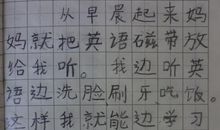 从早晨起来妈
妈就把英语磁带放
给我听。我边听英
语边洗脸刷牙吃饭。
这样我就能边学习